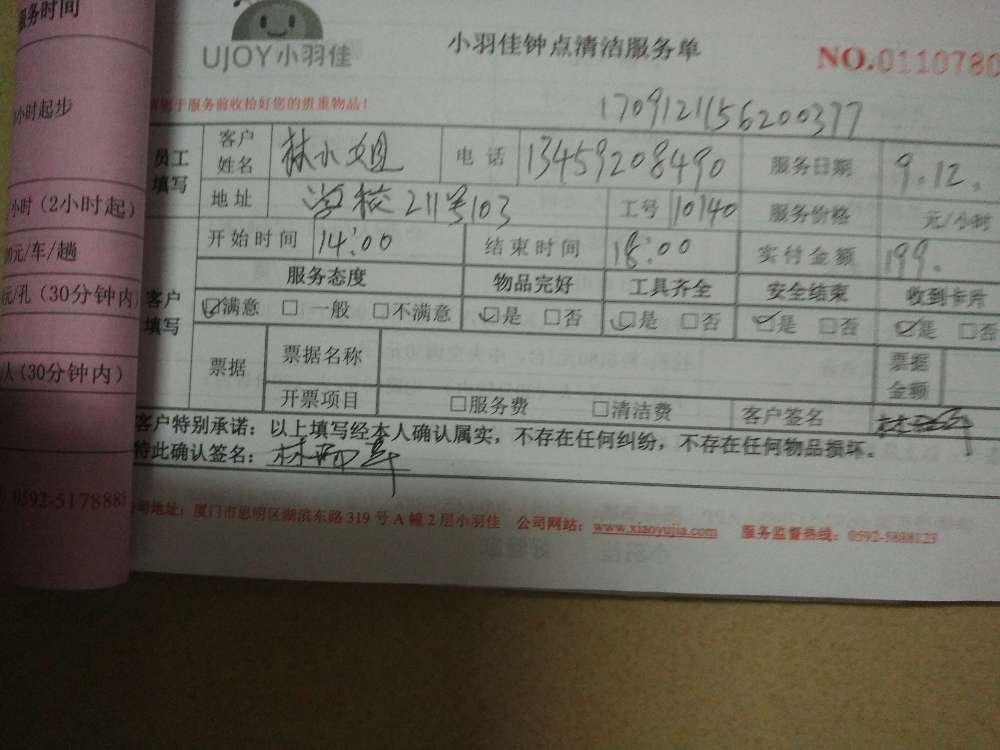 服务时间
小时起步
小时（2小时起）
00元/车/趟
元/孔（30分钟内）
人（30分钟内）
0592-5178888
UJOY小羽佳
小羽佳钟点清洁服务单
NO.0110780
请您于服务前收拾好您的贵重物品！
1709121156200377
员工填写
客户姓名 林小姐 电话 13459208490 服务日期 9.12.
地址 学校211号103 工号 10140 服务价格 元/小时
开始时间 14:00 结束时间 18:00 实付金额 199.
客户填写
服务态度 物品完好 工具齐全 安全结束 收到卡片
☑满意 □一般 □不满意 ☑是 □否 ☑是 □否 ☑是 □否 ☑是 □否
票据 票据名称 票据金额
开票项目 □服务费 □清洁费 客户签名
客户特别承诺：以上填写经本人确认属实，不存在任何纠纷，不存在任何物品损坏。
特此确认签名：
公司地址：厦门市思明区湖滨东路319号A幢2层小羽佳 公司网站：www.xiaoyujia.com 服务监督热线：0592-5888123